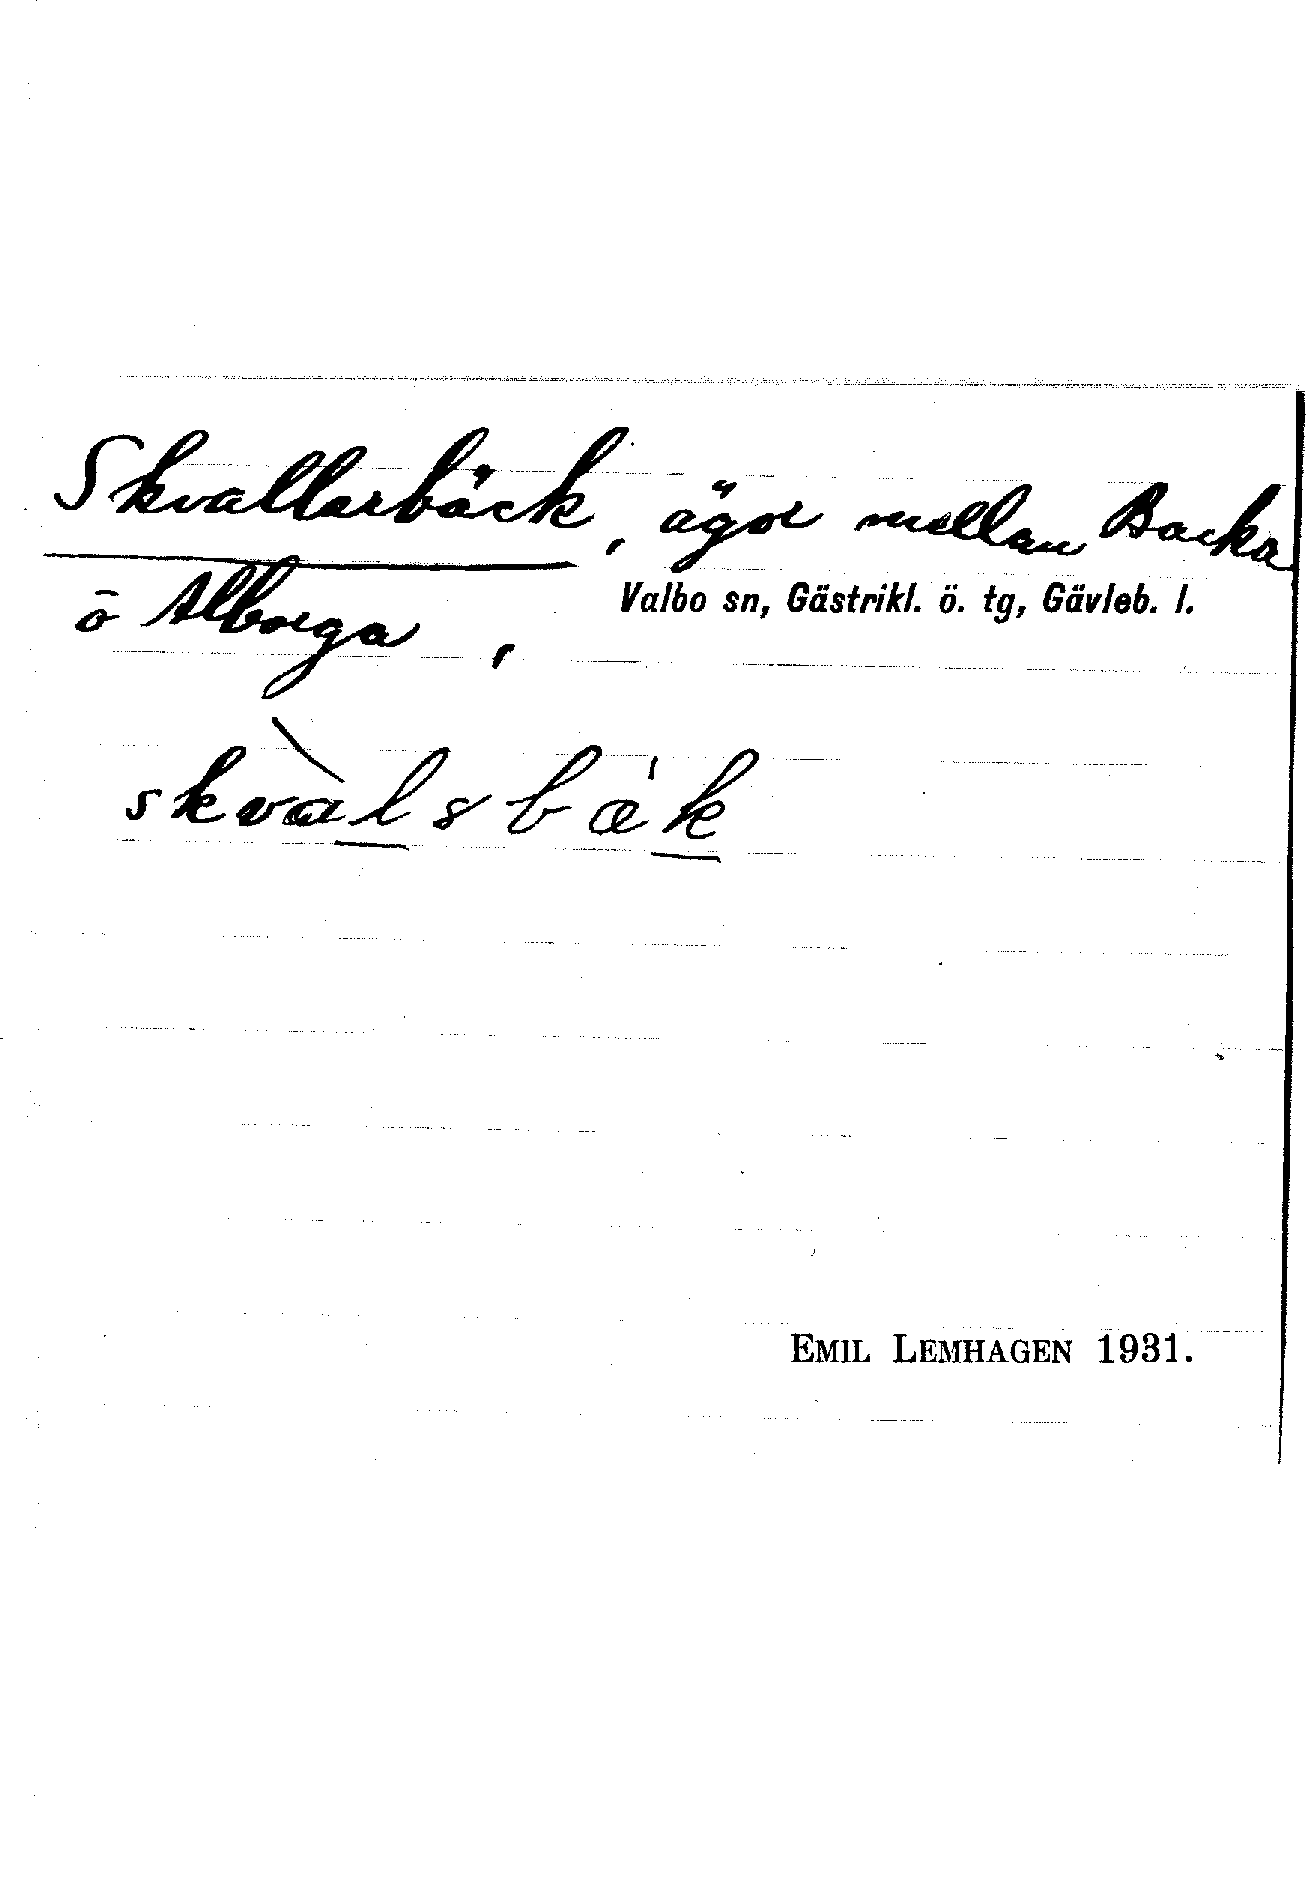 Skvallerbäck, ägor mellan Backa
o Alborga,
Valbo sn, Gästrikl. ö. tg, Gävleb. l.
skvàlsbæ'k
EMIL LEMHAGEN 1931.